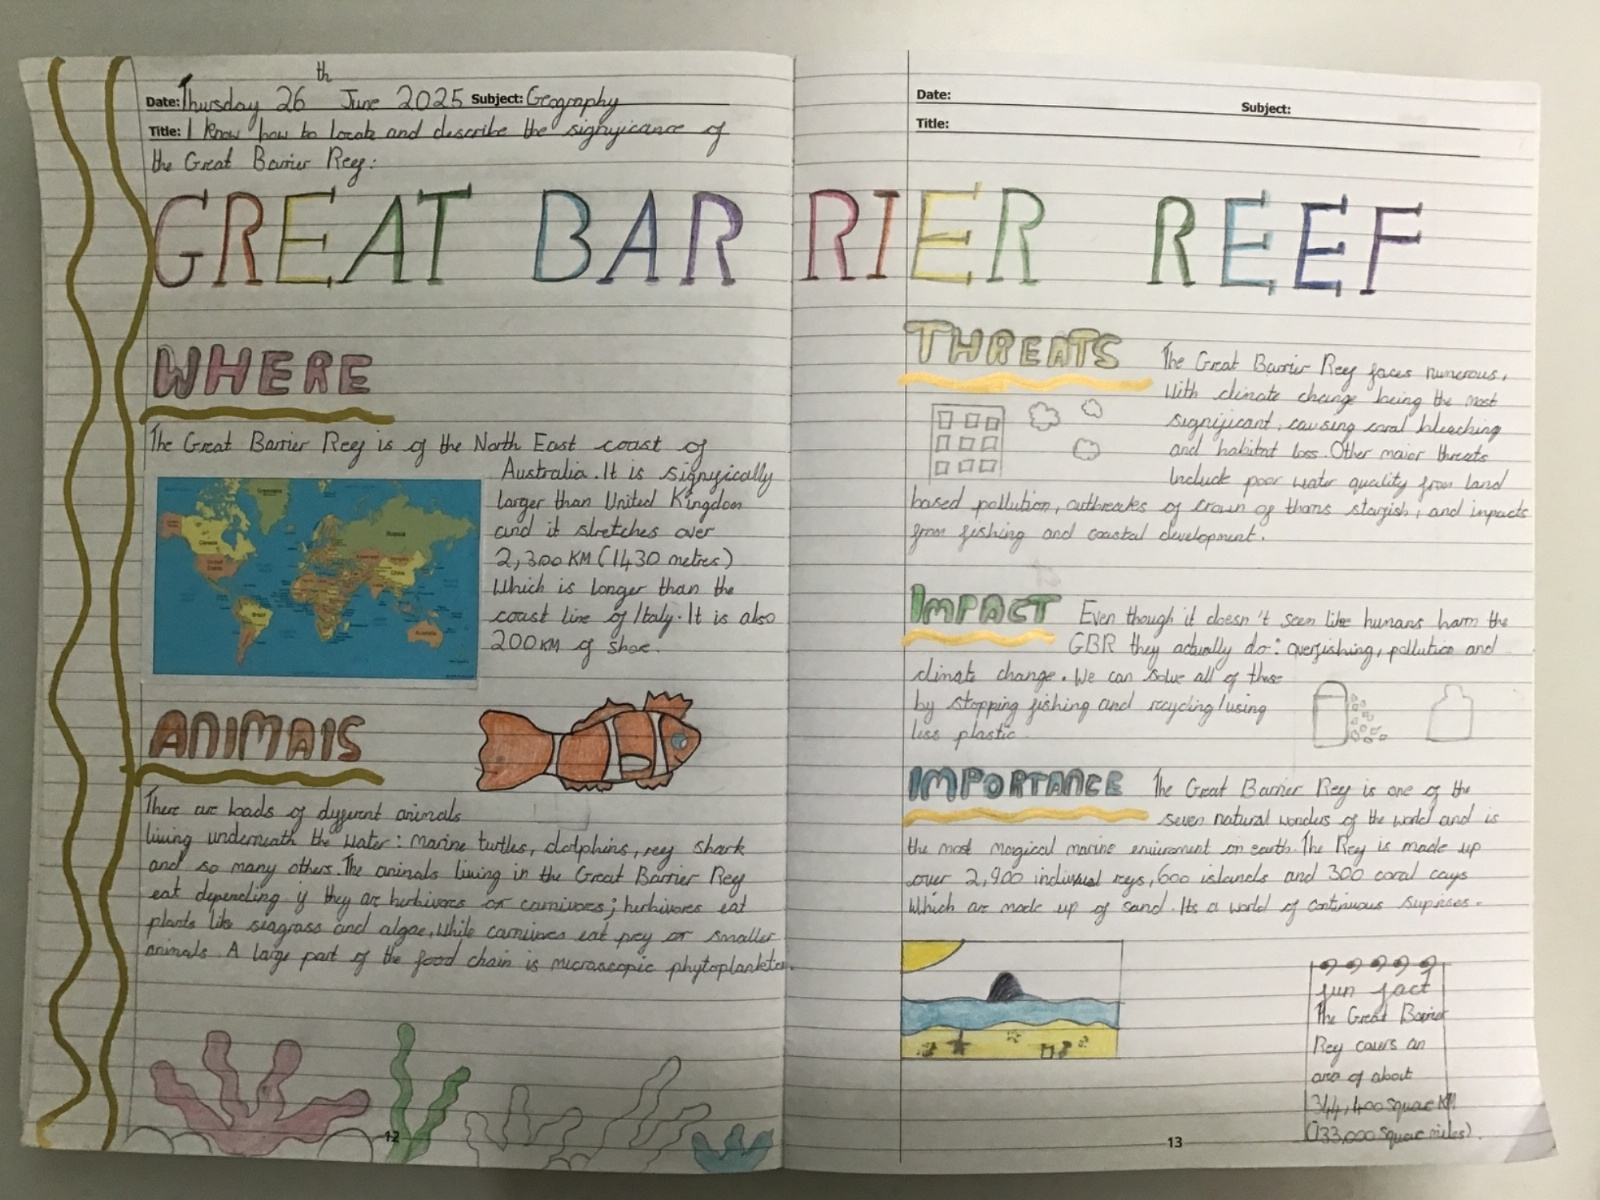 Date: Thursday 26th June 2025 Subject: Geography
Title: I know how to locate and describe the significance of
the Great Barrier Reef:
GREAT BARRIER REEF
WHERE
The Great Barrier Reef is of the North East coast of
Australia. It is significally
larger than United Kingdom
and it stretches over
2,300 KM (1430 metres)
Which is longer than the
coast line of Italy. It is also
200 KM of shoe.
Canada
United States
Brazil
Russia
China
Australia
ANIMALS
There are loads of different animals
living underneath the water: marine turtles, dolphins, reef shark
and so many others. The animals living in the Great Barrier Reef
eat depending if they are herbivores or carnivores; herbivores eat
plants like seagrass and algae, While carnivores eat prey or smaller
animals. A large part of the food chain is microscopic phytoplankton.
12
Date:
Subject:
Title:
THREATS
The Great Barrier Reef faces numerous,
With climate change being the most
significant, causing coral bleaching
and habitat loss. Other major threats
include poor water quality from land
based pollution, outbreaks of crown of thorns starfish, and impacts
from fishing and coastal development.
IMPACT
Even though it doesn't seem like humans harm the
GBR they actually do: overfishing, pollution and
climate change. We can solve all of these
by stopping fishing and recycling/using
less plastic.
IMPORTANCE
The Great Barrier Reef is one of the
seven natural wonders of the world and is
the most magical marine enviroment on earth. The Reef is made up
over 2,900 individual reefs, 600 islands and 300 coral cays
Which are made up of sand. Its a world of continuous suprises.
fun fact
The Great Barrier
Reef covers an
area of about
344,400 square KM
(133,000 square miles).
13